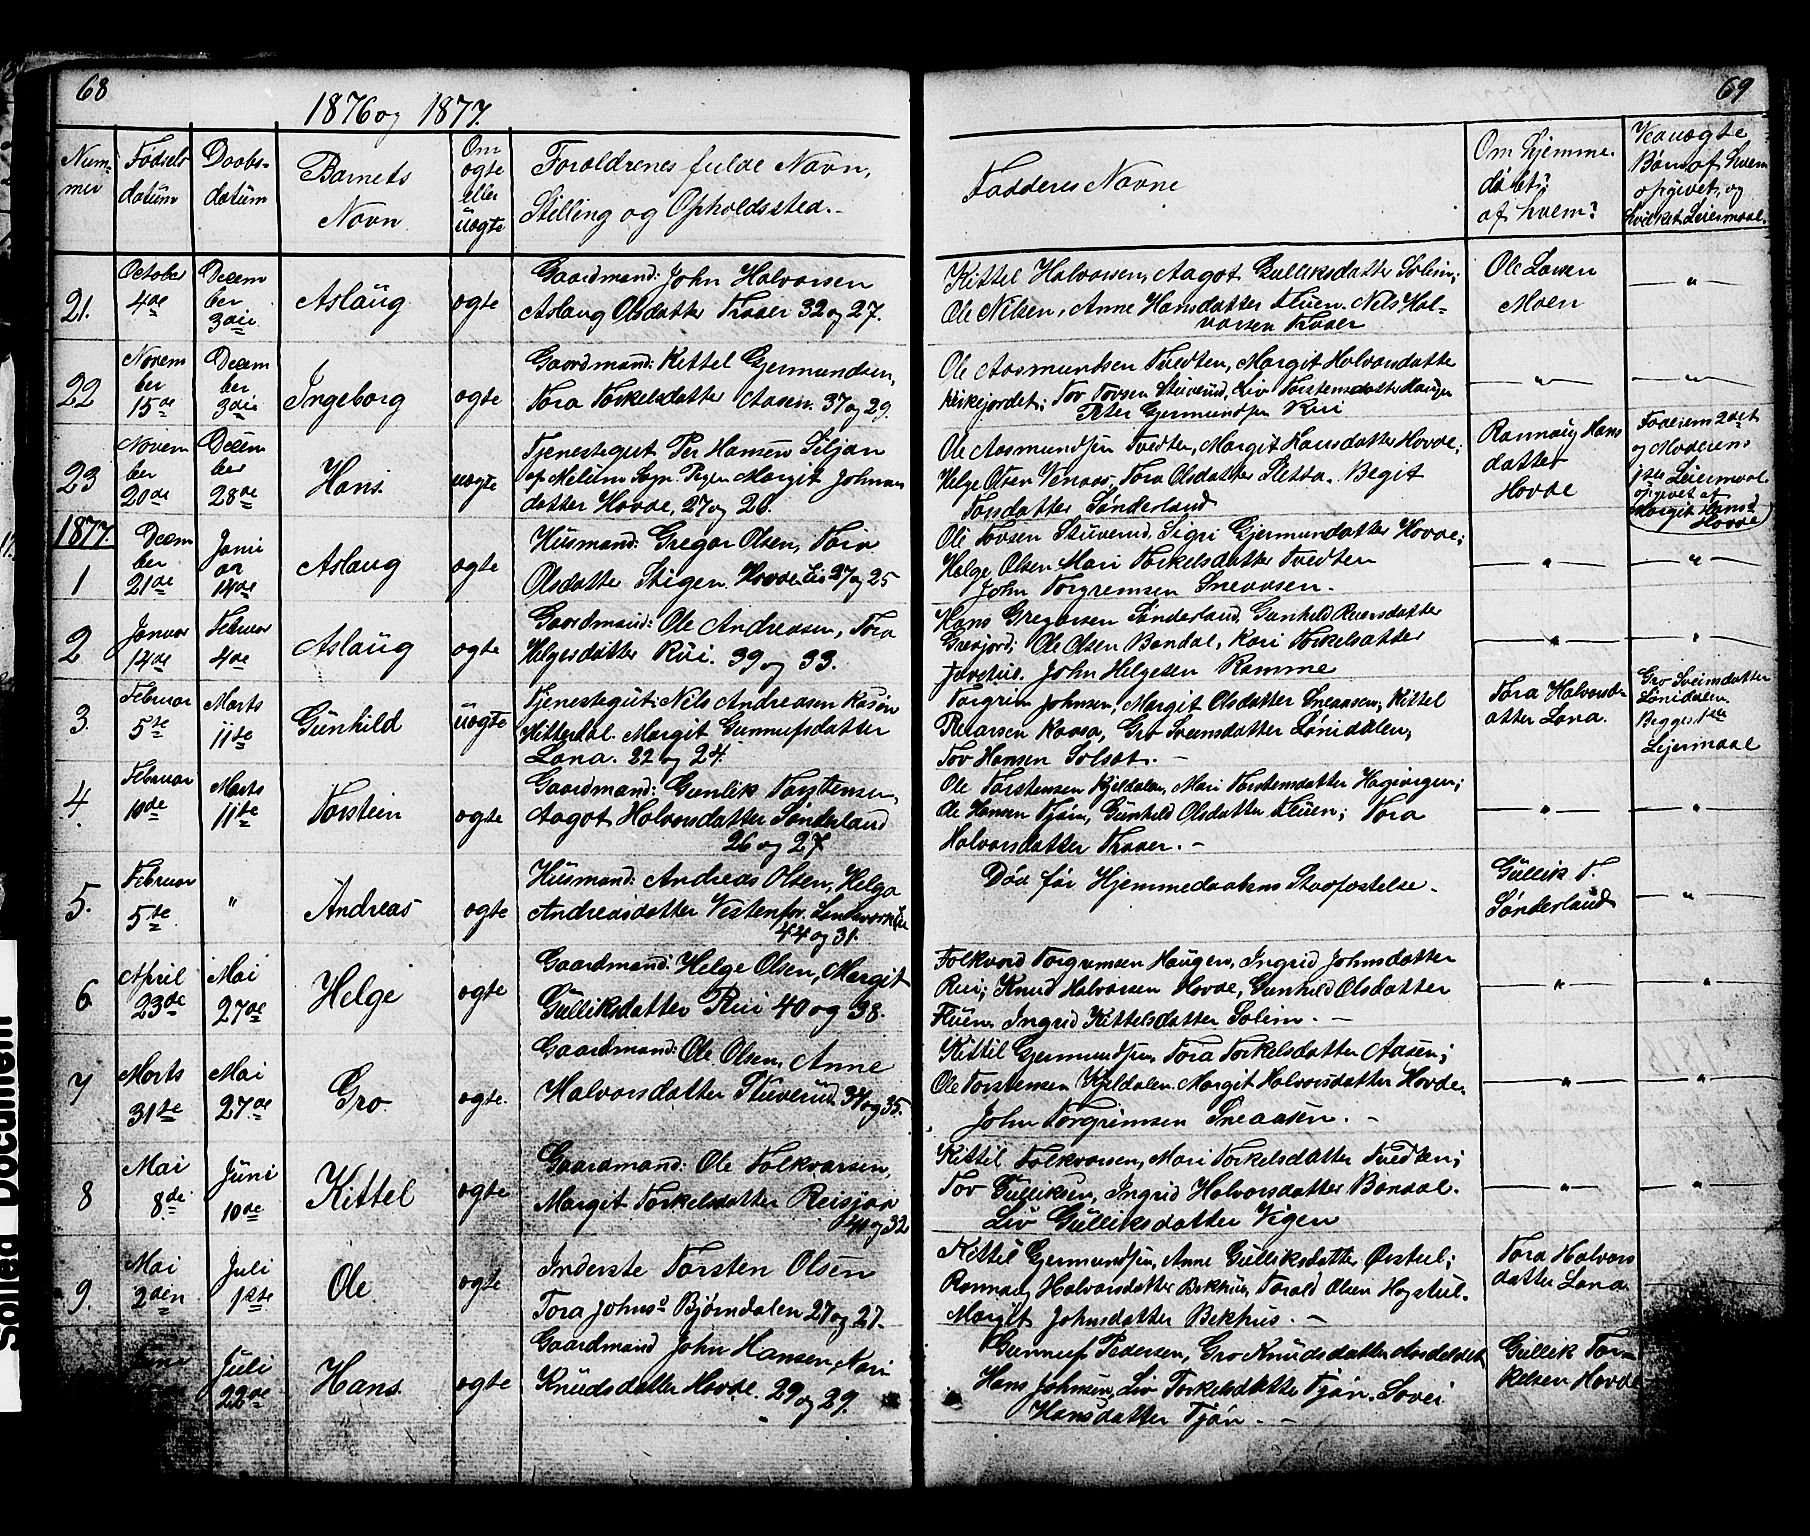 68
1876 og 1877.
Num-
mer
Fødsels
datum
Daabs-
datum
Barnets
Navn
Om
ægte
eller
uægte
Forældrenes fulde Navn,
Stilling og Opholdssted.
21.
October
4de
Decem
ber
3die
Aslaug
ægte
Gaardmand: John Halvorsen
Aslaug Olsdatter Traaer 32 og 27.
22
Novem
ber
15de
Decem
ber
3die
Ingeborg
ægte
Gaardmand: Kittel Gjermundsen,
Tora Torkelsdatter Aasen. 37 og 29.
23
Novem
ber
20de
Decem
ber
28de
Hans.
uægte
Tjenestegut Per Hansen Siljan
af Melum Sogn. Pigen Margit Johnsen
datter Hovde, 27 og 26.
1877.
1
Decem
ber
21de
Janu
ar
14de
Aslaug
ægte
Husmand: Gregar Olsen, Tora
Olsdatter Stigen Hovde Eie 27 og 25
2
Januar
14de
Februar
4de
Aslaug
ægte
Gaardmand: Ole Andreasen, Tora
Helgesdatter Rui. 39 og 33.
3.
Februar
5te
Marts
11te
Gunhild
uægte
Tjenestegut: Nils Andreasen Kasin
Hitterdal. Margit Gunnufsdatter
Lona. 22 og 24.
4.
Februar
10de
Marts
11te
Torstein
ægte
Gaardmand: Gunlik Torstensen,
Aagot Halvorsdatter Sønderland
26 og 27.
5.
Februar
5te
"
Andreas
ægte
Husmand: Andreas Olsen, Helga
Andreasdatter Vesten for
44 og 31.
6
April
23de
Mai
27de
Helge
ægte
Gaardmand: Helge Olsen, Margit
Gulliksdatter Rui 40 og 38.
7
Marts
31te
Mai
27de
Gro.
ægte.
Gaardmand: Ole Olsen, Anne
Halvorsdatter Stuverud 34 og 35.
8
Mai
8de
Juni
10de
Kittel
ægte
Gaardmand: Ole Folkvarsen,
Margit Torkelsdatter Reisjaa
og 32
9.
Mai
2den
Juli
1ste
Ole
ægte
Inderste Torsten Olsen
Tora Johnsd Bjørndalen 27 og 27.
Juli
22de
Hans.
ægte
Gaardmand John Hansen, Kari
Knudsdatter Hovde. 29 og 29.
69
Fadderes Navne
Om hjemme
døbt?
af hvem?
Ved uægte
Børn af hvem
opgivet, og
hvilket Leiermaal.
Kittel Halvorsen, Aagot Gulliksdatter Solim;
Ole Nilsen, Anne Hansdatter Fluen. Nils Hal-
vorsen Traaer
Ole Larsen
Moen
"
Ole Aasmundsen Tvedten, Margit Halvorsdatter
Kirkejordet; Tov Tovsen Stuverud, Liv Torstensdatter Haugen
Peter Gjermundsen Rui
"
"
Ole Aasmundsen Tvedten, Margit Hansdatter Hovde;
Helge Olsen Venaas; Tora Olsdatter Sletta. Begit
Tovsdatter Sønderland
Rannaug Hans
datter
Hovde
Faderens 2det
og Moderens
1ste Leiermaal
opgivet af
Margit Hansd
Hovde
Ole Tovsen Stuverud, Sigri Gjermundatter Hovde;
Helge Olsen Mari Torkelsdatter Tvedten
John Torgrimsen Sneaasen.
"
"
Hans Gregarsen Sønderland, Gunhild Reiersdatter
Grøsjord; Ole Olsen Bondal, Kari Torkelsdatter
John Helgesen Ramme
"
"
Torgrim Johnsen, Margit Olsdatter Sneaasen; Kittel
Petersen Kaasa, Gro Sveinsdatter Lønidalen,
Tov Hansen Solsat. -
Tora Halvorsd-
atter Lona.
Gro Sveinsdatter
Lønidalen
Begges 1ste
Leiermaal
Ole Torstensen Kjeldalen, Mari Torstensdatter;
Ole Hansen Tjøn, Gunhild Olsdatter Fluen; Tora
Halvorsdatter Traaer. -
"
"
Død før Hjemmedaabens Stadfæstelse.
Gullik T.
Sønderland
"
Folkvord Torgrimsen Haugen, Ingrid Johnsdatter
Rui; Knud Halvorsen Hovde, Gunhild Olsdatter
Fluen. Ingrid Kittelsdatter Solim. -
"
"
Kittil Gjermundsen, Tora Torkelsdatter Aasen;
Ole Torstensen Kjeldalen. Margit Halvorsdatter Hovde.
John Torgrimsen Sneaasen. -
"
"
Kittil Folkvarsen, Mari Torkelsdatter Tvedten;
Tov Gulliksen, Ingrid Halvorsdatter Bondal.
Liv Gulliksdatter Vigen
"
"
Kittil Gjermundsen, Anne Gulliksdatter Ørstul;
Rannaug Halvorsdatter Bekhus, Torald Olsen Høgstul.
Margit Johnsdatter Bekhus. -
Tora Halvors
datter Lona
Gunnuf Pedersen, Gro Knudsdatter
Hans Johnsen, Liv Torkelsdatter Tjøn. Sovei
Hansdatter Tjøn. -
Gullik Tor-
kelsen Hovde